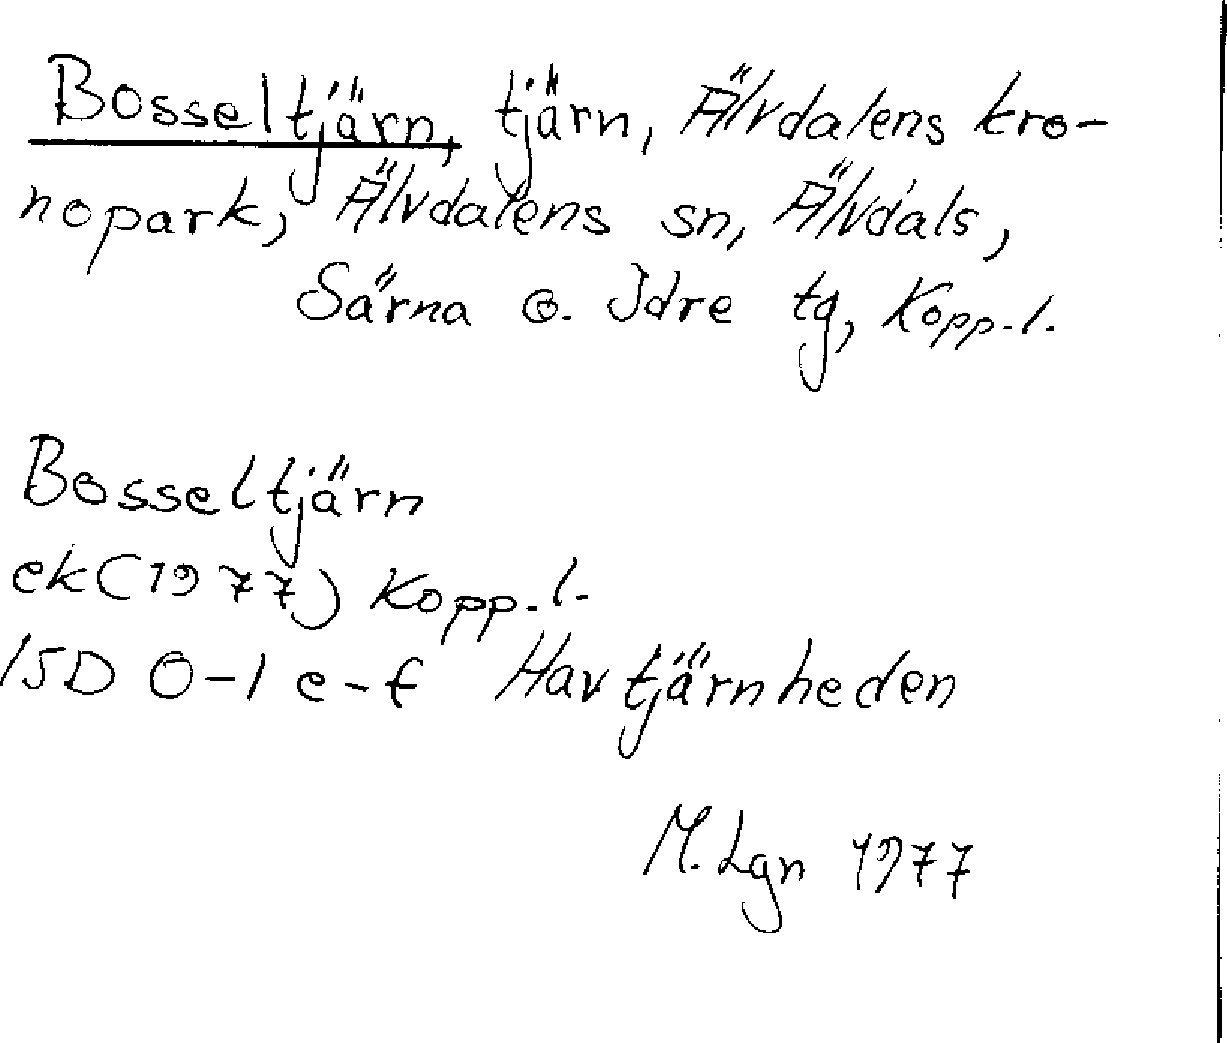 Bosseltjärn, tjärn, Älvdalens kro-
nopark, Älvdalens sn, Älvdals,
Särna o. Idre tg, Kopp.l.
Bosseltjärn
ek (1977) Kopp.l.
15D 0-1 e-f Havtjärnheden
M. Lgn 1977